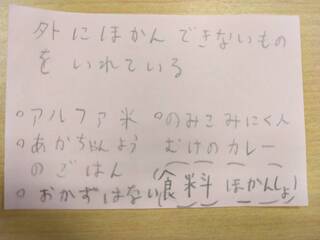 外にほかんできないもの
をいれている
・アルファ米
・あかちゃんよう
のごはん
・おかずはない
・のみこみにく人
むけのカレー
(食料ほかんしょ)